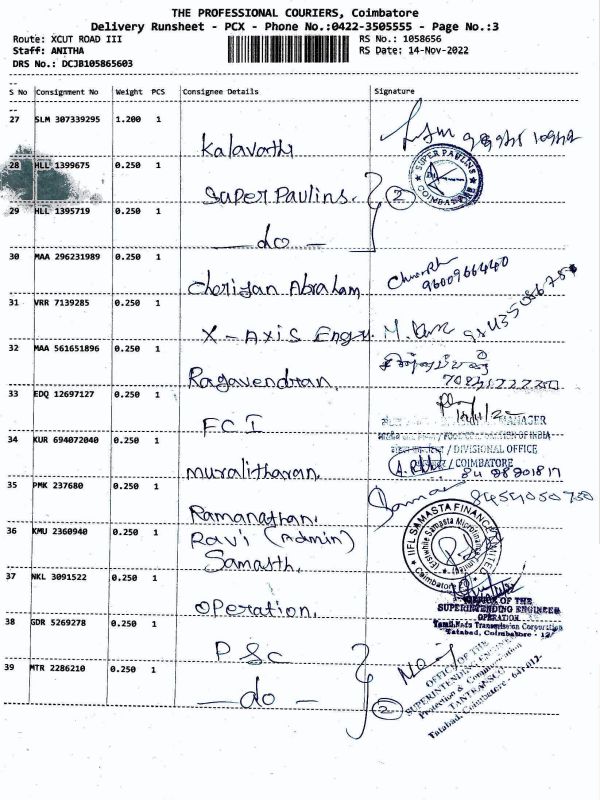 THE PROFESSIONAL COURIERS, Coimbatore
Delivery Runsheet - PCX - Phone No.:0422-3505555 - Page No.:3
Route: XCUT ROAD III RS No.: 1058656
Staff: ANITHA RS Date: 14-Nov-2022
DRS No.: DCJB105865603
S No Consignment No Weight PCS Consignee Details Signature
27 SLM 307339295 1.200 1
Kalavathi
28 HLL 1399675 0.250 1 SUPER PAULINS COIMBATORE
Saper Paulins. 2
29 HLL 1395719 0.250 1
— do —
30 MAA 296231989 0.250 1
Cherijan Abraham 9600966440
31 VRR 7139285 0.250 1
X-Axis Engg.
32 MAA 561651896 0.250 1
Ragavendran.
33 EDQ 12697127 0.250 1
FCI MANAGER
34 KUR 694072040 0.250 1 / DIVISIONAL OFFICE
/ COIMBATORE
muralitharan.
35 PMK 237680 0.250 1
Ramanathan.
36 KMU 2360940 0.250 1 IIFL SAMASTA FINANCE LIMITED
Ravi (Admin) (Erstwhile Samasta Microfinance Limited)
Samasth. Coimbatore
37 NKL 3091522 0.250 1
Operation. OFFICE OF THE
SUPERINTENDING ENGINEER
OPERATION
38 GDR 5269278 0.250 1 Tamil Nadu Transmission Corporation
Tatabad, Coimbatore - 12
PSC
39 MTR 2286210 0.250 1 OFFICE OF THE
SUPERINTENDING ENGINEER
Protection & Communication
— do — 2 TANTRANSCO
Tatabad, Coimbatore - 641 012